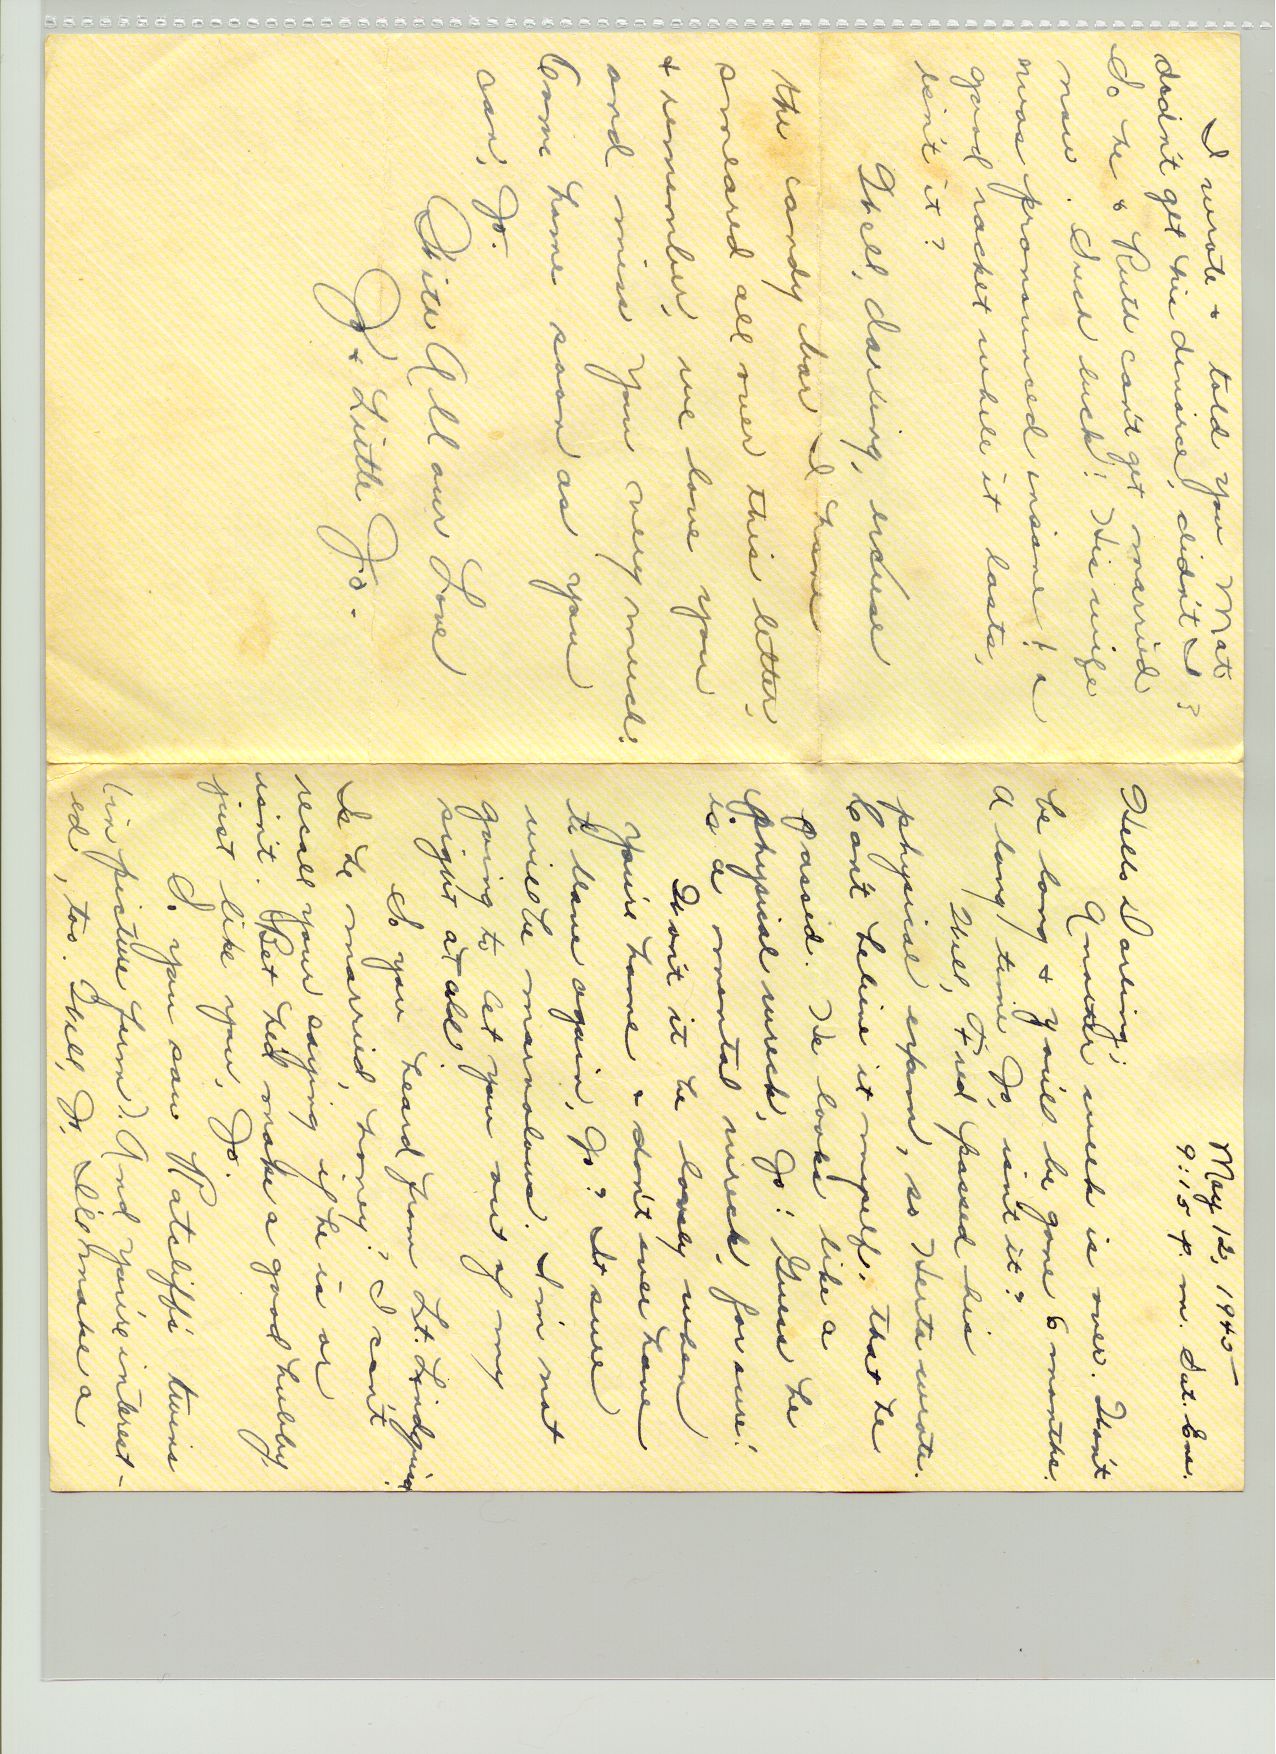 May 12, 1945
9:15 p.m. Sat. Eve.
Hello Darling;
Another week is over. Won't
be long & you'll be gone 6 months.
A long time Jo, isn't it?
Well, Fred passed his
physical exam, so Herta wrote.
Can't believe it myself, that he
passed. He looks like a
physical wreck, Jo! Guess he
is a mental wreck, for sure!
Won't it be lovely when
you're home & don't ever have
to leave again, Jo? It sure
will be marvalous. I'm not
going to let you out of my
sight at all!
So you heard from Lt. Lindquist.
Is he married, honey? I can't
recall your saying if he is or
isn't. Bet he'd make a good hubby
just like you, Jo.
So you saw Ratcliff's twins
(in picture form). And you're interest-
ed, too. Well, Jo, I'll make a
I wrote & told you Mat
didn't get his divorce, didn't I?
So he & Ruth can't get married
now. Such luck! His wife
was pronounced insane! a
good racket while it lasts,
isn't it?
Well, darling, excuse
the candy bar I have
smeared all over this letter,
& remember, we love you
and miss you very much!
Come home soon as you
can, Jo.
With All our Love
Jo & Little Jo.